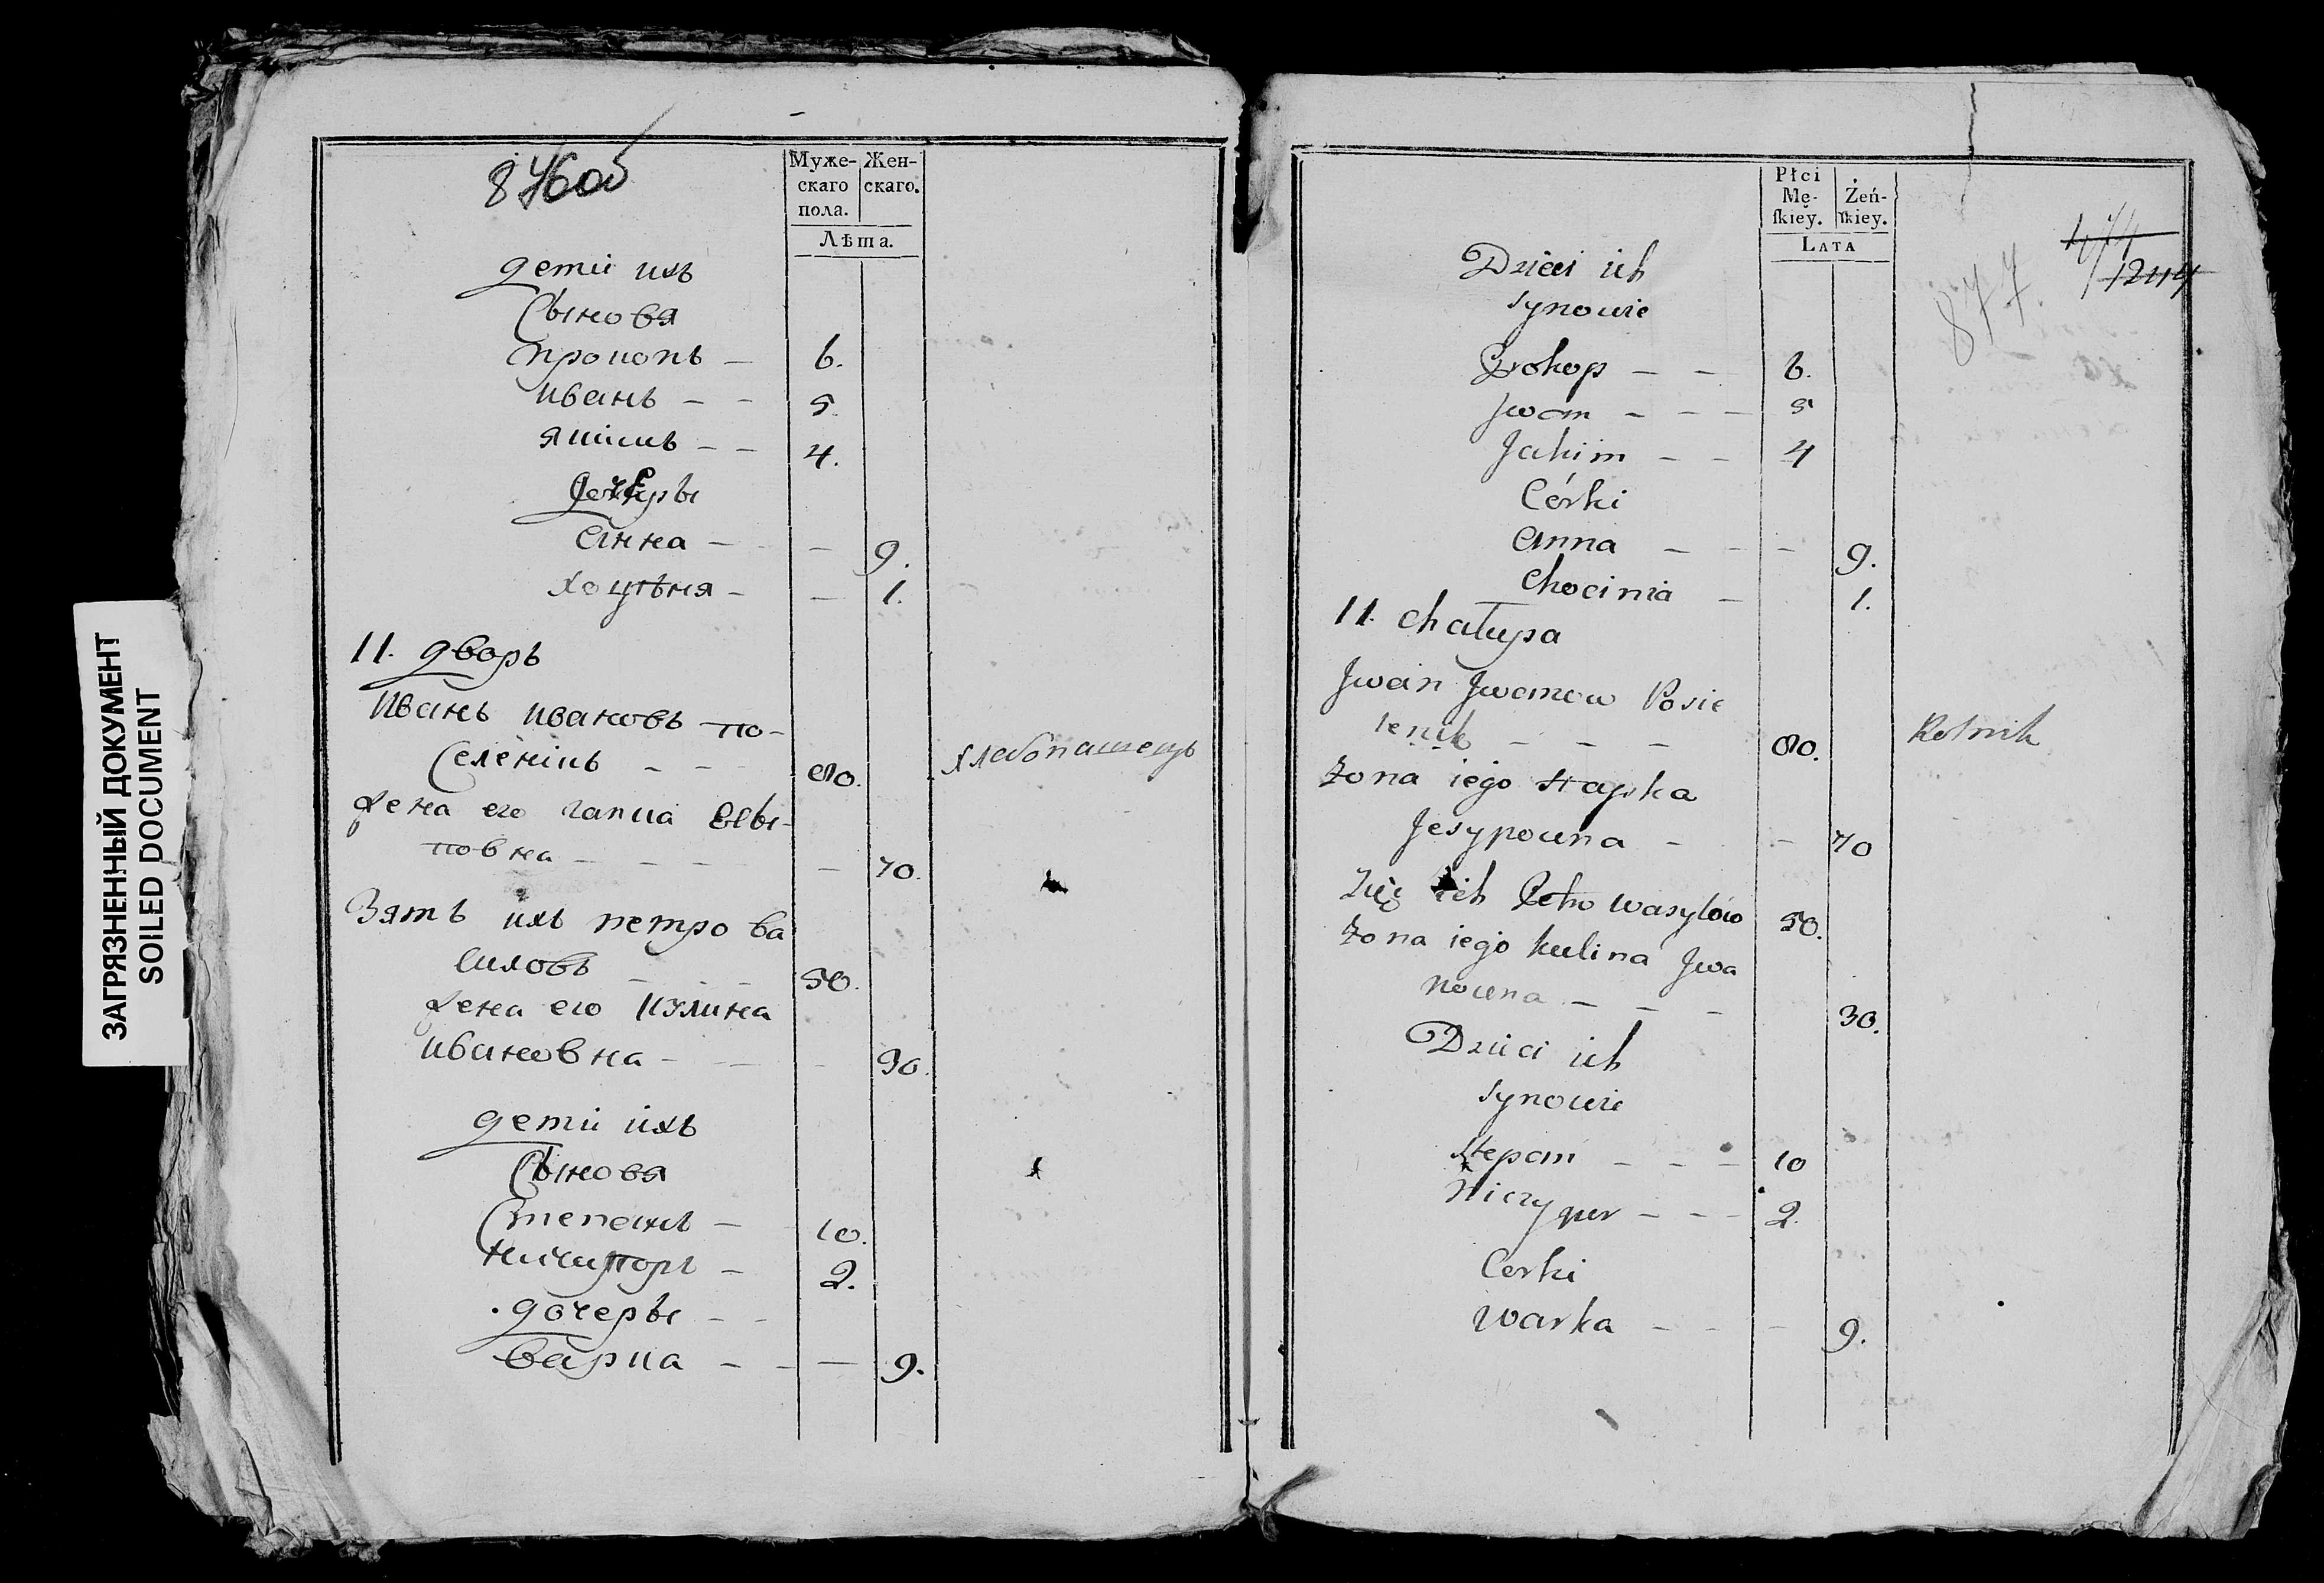 ЗАГРЯЗНЕННЫЙ ДОКУМЕНТ
SOILED DOCUMENT
876 об
Муже-
скаго
пола.
Жен-
скаго.
Лѣта.
дети ихъ
Сыновя
прокопъ — 6.
иванъ — — 5.
якимъ — — 4.
Дочеры
Анна — — 9.
хоцѣня — — 1.
11. дворъ
Иванъ ивановъ по-
селенікъ — — 80. хлебопашецъ
жена его гапка Есы-
повна — — — — 70.
Зять ихъ петро ва
силовъ — — — 50.
жена его кулина
ивановна — — — 30.
дети ихъ
Сыновя
Степанъ — 10.
ничипоръ — 2.
дочеры — —
варка — — — 9.
Płci
Mę-
ſkiey.
Żeń-
ſkiey.
LATA
877.
1244
Dzieci ich
synowie
Prokop — — 6.
Jwan — — — 5
Jakim — — 4
Córki
Anna — — — 9.
Chocinia — 1.
11. chałupa
Jwan Jwanow Posie
lenik — — — 80. Rolnik
żona iego Hapka
Jesypowna — — 70
Zięć ich Petro wasylów 50.
żona iego kulina Jwa
nowna — — — 30.
Dzieci ich
synowie
Stepan — — — 10
Niczypor — — — 2.
Corki
Warka — — — 9.